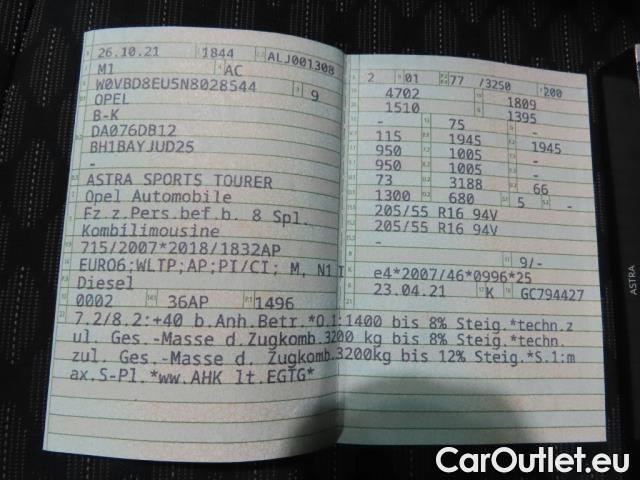 26.10.21 1844 ALJ001308
M1 AC
W0VBD8EU5N8028544 9
OPEL
B-K
DA076DB12
BH1BAYJUD25
-
ASTRA SPORTS TOURER
Opel Automobile
Fz.z.Pers.bef.b. 8 Spl.
Kombilimousine
715/2007*2018/1832AP
EURO6;WLTP;AP;PI/CI; M, N1 I
Diesel
0002 36AP 1496
7.2/8.2:+40 b.Anh.Betr.*O.1:1400 bis 8% Steig.*techn.z
ul. Ges.-Masse d.Zugkomb.3200 kg bis 8% Steig.*techn.
zul. Ges.-Masse d. Zugkomb.3200kg bis 12% Steig.*S.1:m
ax.S-Pl.*ww.AHK lt.EGTG*
2 01 77 /3250 200
4702 1809
1510 1395
- 75 -
115 1945 1945
950 1005 -
950 1005 -
73 3188 66
1300 680 5 -
205/55 R16 94V
205/55 R16 94V
-
9/-
e4*2007/46*0996*25
23.04.21 K GC794427
ASTRA
CarOutlet.eu